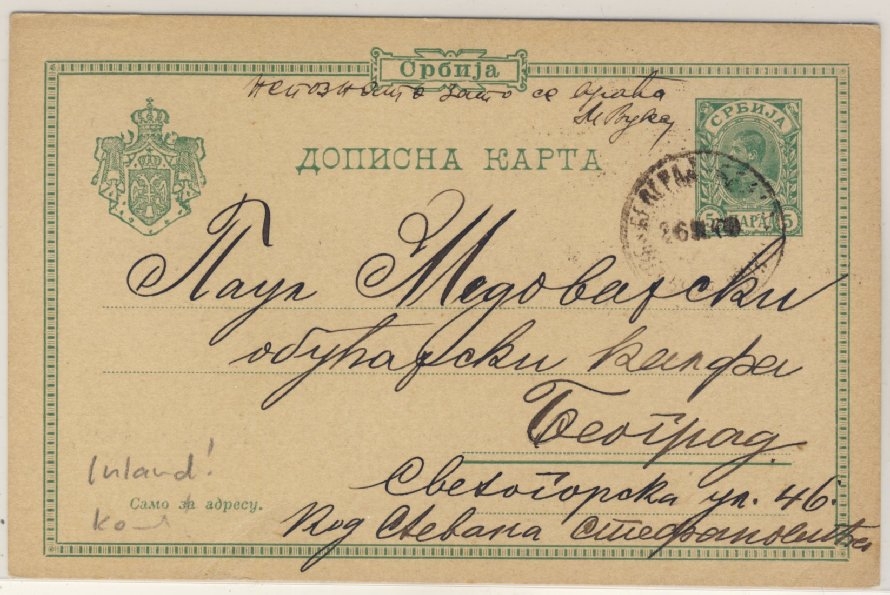 Србија
непознато зато се враћа
М Вукај
СРБИЈА
ДОПИСНА КАРТА
5 ПАРА 5
БЕОГРАД
26
Паул Медоварски
обућарски калфа
Београд.
Светогорска ул. 46.
код Стевана Стефановића
Inland!
Само за адресу.